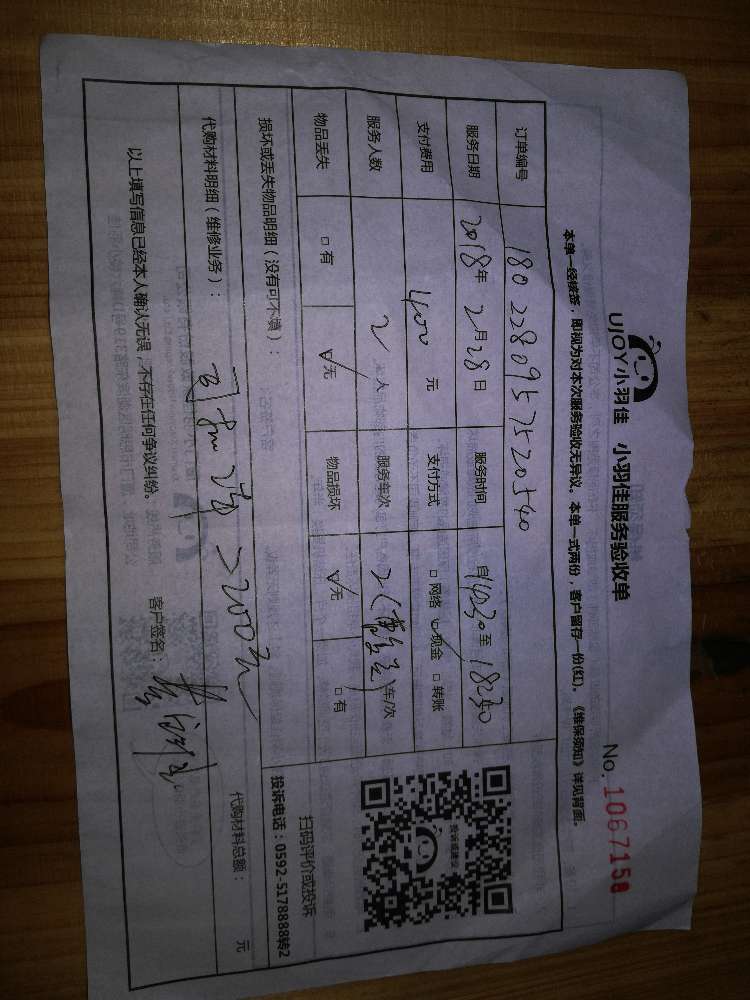 UJOY小羽佳 小羽佳服务验收单
No. 1067158
本单一经接签，即视为对本次服务验收无异议。本单一式两份，客户留存一份(红)。《维保须知》详见背面。
订单编号 1802280957520540
服务日期 2018年2月28日 服务时间 自1430至1830
支付费用 400元 支付方式 □网络 ☑现金 □转账
服务人数 2人 服务车次 2 车/次
物品丢失 □有 ☑无 物品损坏 ☑无 □有
损坏或丢失物品明细（没有可不填）：
扫码评价或投诉
投诉电话：0592-5178888转2
代购材料明细（维修业务）： 200元
代购材料总额： 元
以上填写信息已经本人确认无误，不存在任何争议纠纷。 客户签名：